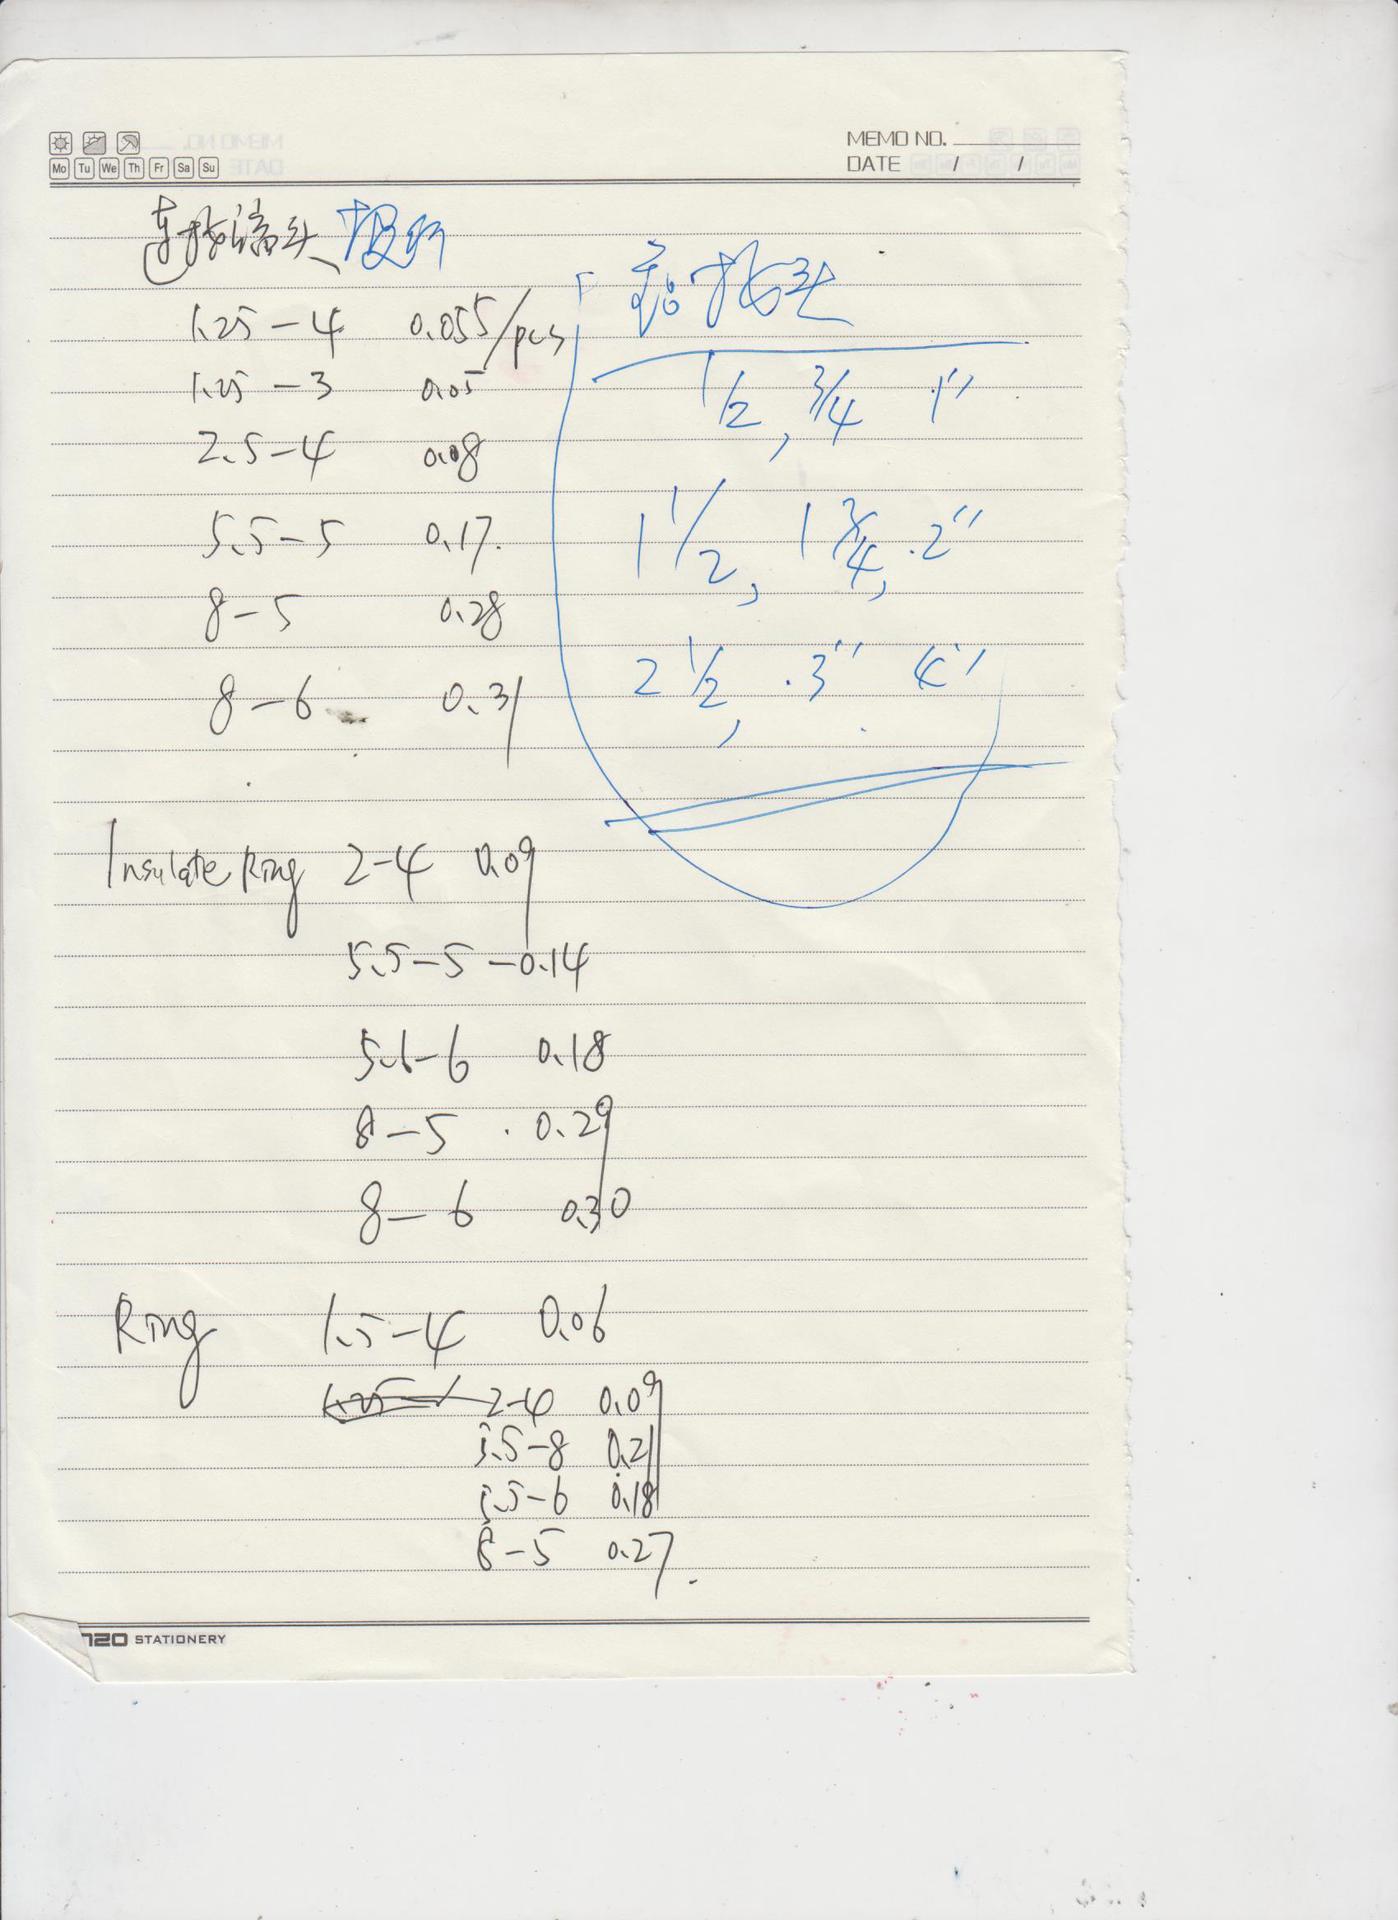 MEMO NO.
Mo Tu We Th Fr Sa Su
DATE / /
连接端头 报价
1.25-4 0.055/pcs
1.25-3 0.05
2.5-4 0.08
5.5-5 0.17.
8-5 0.28
8-6 0.31
接头
1/2, 3/4 1"
1 1/2, 1 3/4, 2"
2 1/2, 3" 4"
Insulate Ring 2-4 0.09
5.5-5-0.14
5.5-6 0.18
8-5 0.29
8-6 0.30
Ring 1.5-4 0.06
2-4 0.09
5.5-8 0.21
5.5-6 0.18
8-5 0.27.
STATIONERY